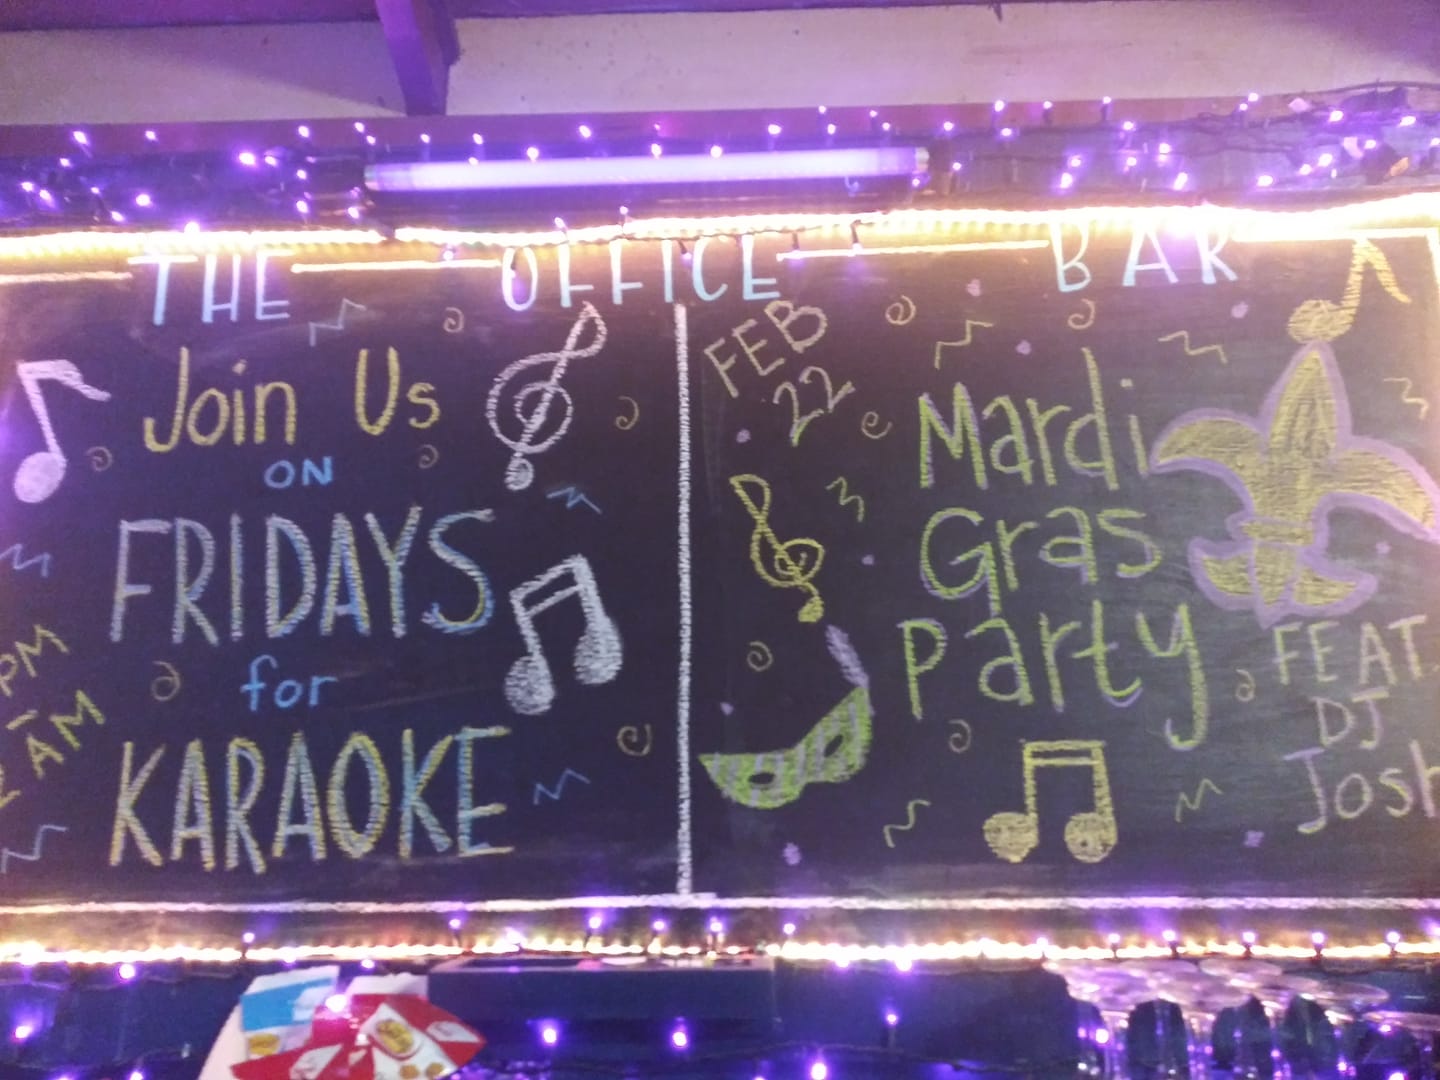 THE OFFICE BAR
Join Us
ON
FRIDAYS
for
KARAOKE
PM
- AM
FEB
22
Mardi
Gras
Party
FEAT.
DJ
Josh